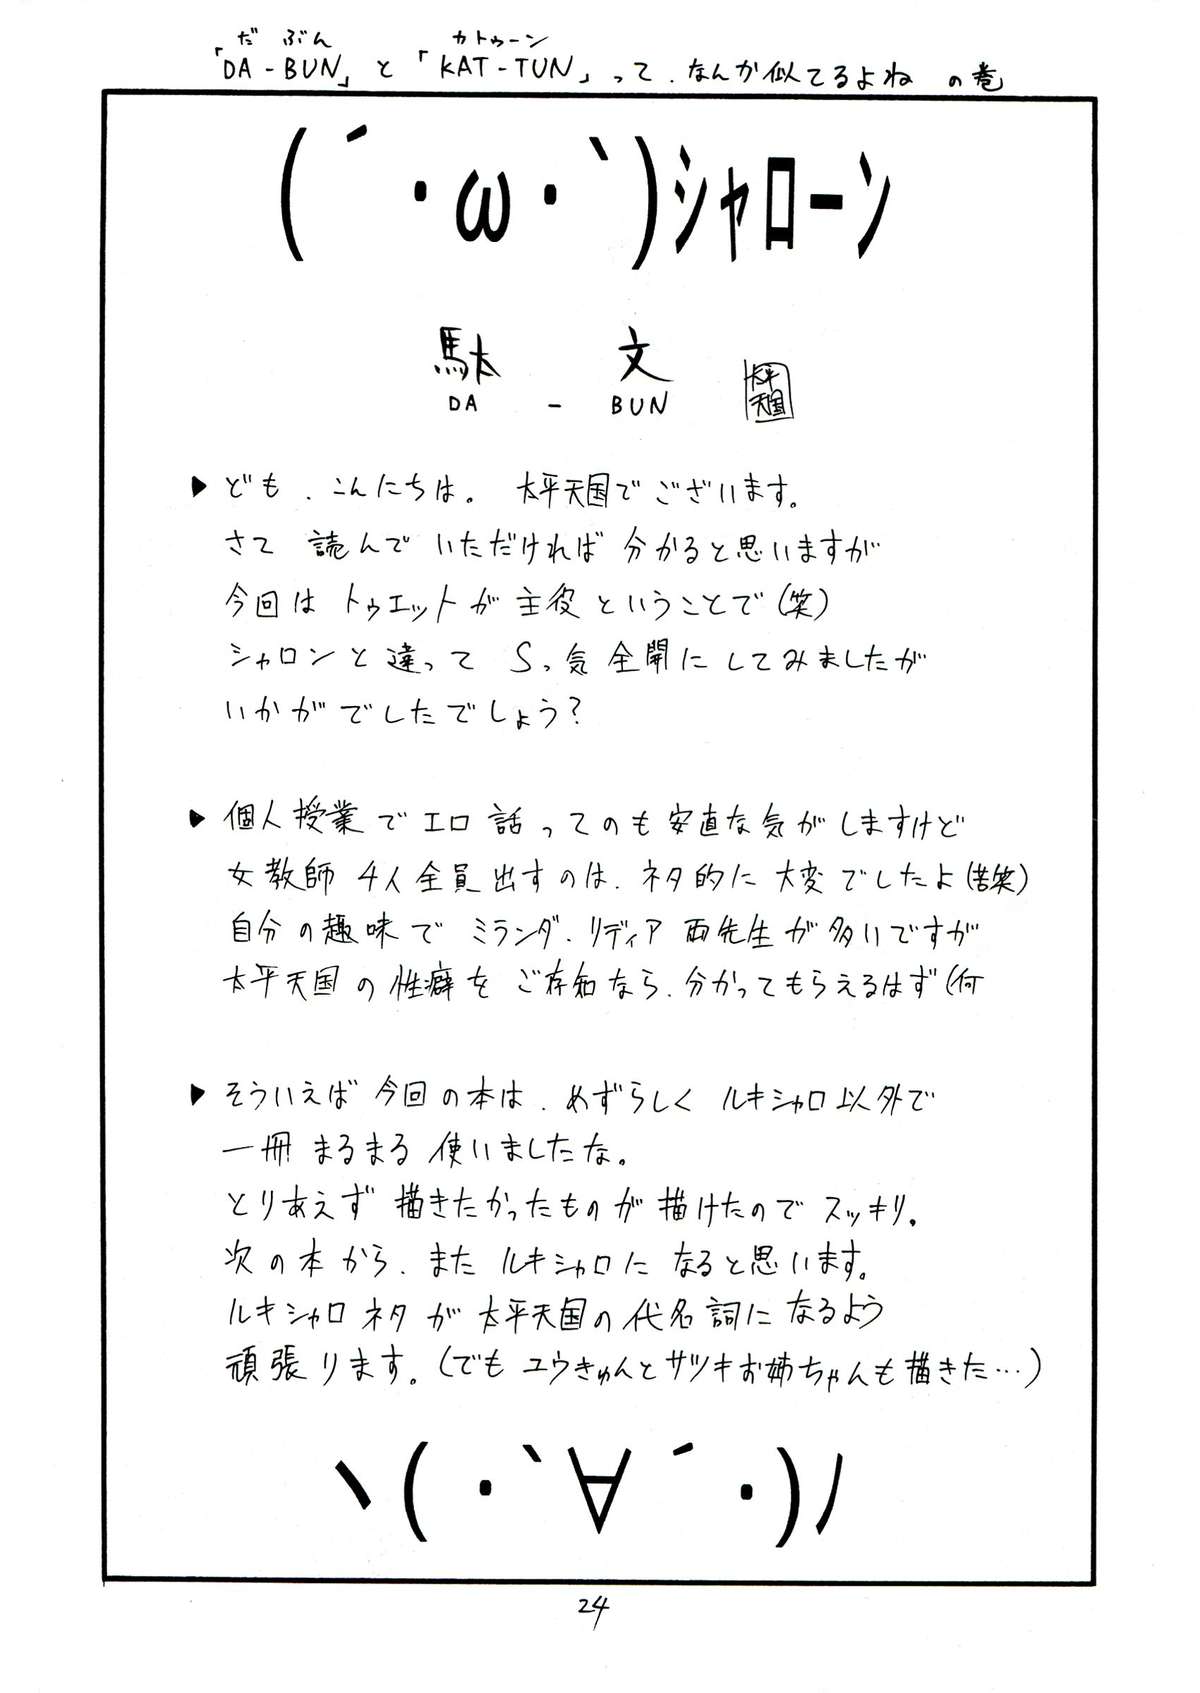 だ ぶん カトゥーン
「DA-BUN」と「KAT-TUN」って、なんか似てるよね の巻
(´・ω・`)シャローン
駄 文
DA - BUN
太平
天国
▶ ども、こんにちは。 太平天国でございます。
さて 読んで いただければ 分かると思いますが
今回は トゥエットが 主役 ということで(笑)
シャロンと 違って Sっ気 全開に してみましたが
いかがでしたでしょう?
▶ 個人授業で エロ話ってのも 安直な気がしますけど
女教師 4人全員出すのは、ネタ的に 大変でしたよ(苦笑)
自分の趣味で ミランダ、リディア 両先生が多いですが
太平天国の性癖を ご存知なら、分かってもらえるはず(何
▶ そういえば 今回の本は、めずらしく ルキシャロ以外で
一冊 まるまる 使いましたな。
とりあえず 描きたかったものが 描けたので スッキリ。
次の本から、また ルキシャロに なると思います。
ルキシャロネタが 太平天国の代名詞になるよう
頑張ります。(でも ユウきゅんと サツキお姉ちゃんも 描きた…)
ヽ(・`∀´・)ノ
24